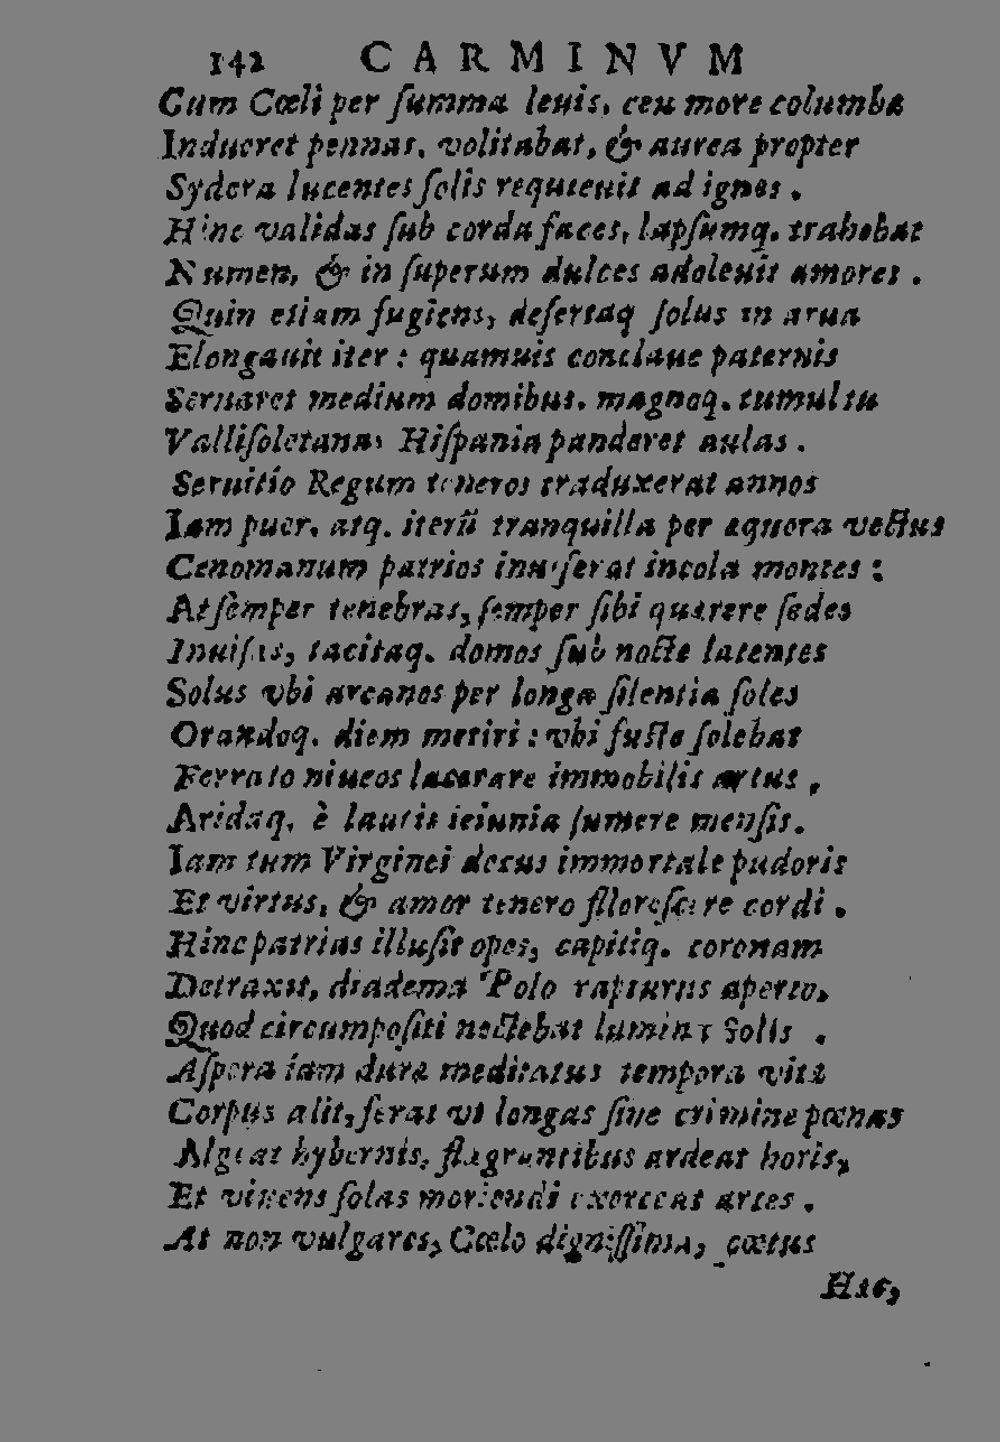 142 CARMINVM
Cum Cœli per ſumma leuis, ceu more columbæ
Indueret pennas, volitabat, & aurea propter
Sydera lucentes ſolis requieuit ad ignes.
Hinc validas ſub corda faces, lapſumq. trahebat
Numen, & in ſuperum dulces adoleuit amores.
Quin etiam fugiens, deſertaq ſolus in arua
Elongauit iter: quamuis conclaue paternis
Seruaret medium domibus, magnoq. tumultu
Valliſoletanas Hiſpania panderet aulas.
Seruitio Regum teneros traduxerat annos
Iam puer, atq. iterũ tranquilla per æquora vectus
Cenomanum patrios inuiſerat incola montes:
At ſemper tenebras, ſemper ſibi quærere ſedes
Inuiſas, tacitaq. domos ſub nocte latentes
Solus vbi arcanos per longa ſilentia ſoles
Orandoq. diem metiri: vbi fuſte ſolebat
Ferrato niueos lacerare immobilis artus,
Aridaq. è lautis ieiunia ſumere menſis.
Iam tum Virginei decus immortale pudoris
Et virtus, & amor tenero flloreſcere cordi.
Hinc patrias illuſit opes, capitiq. coronam
Detraxit, diadema Polo rapturus aperto,
Quod circumpoſiti nectebat lumina Solis.
Aſpera iam duræ meditatus tempora vitæ
Corpus alit, ferat vt longas ſine crimine pœnas
Algeat hybernis, flagrantibus ardeat horis,
Et viuens ſolas moriendi exerceat artes.
At non vulgares, Cœlo digniſſima, cœtus
Hic,